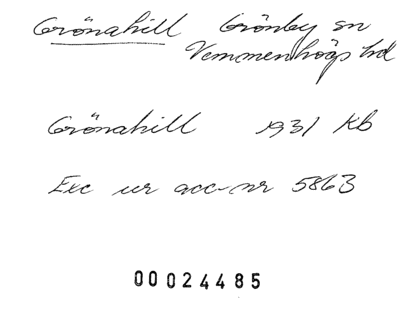 Grönahill Grönby sn
Vemmenhögs hd
Grönahill 1931 KB
Exc ur acc-nr 5863
00024485